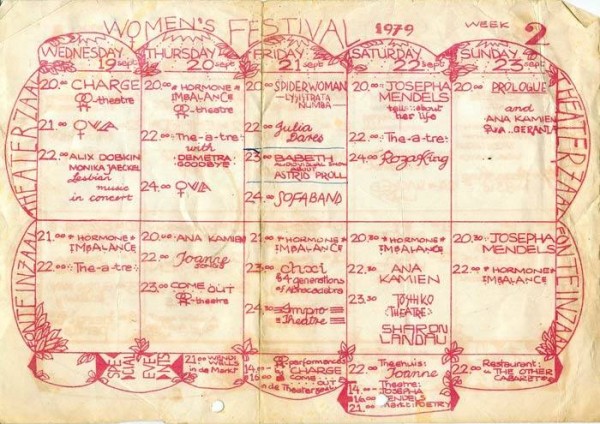 WOMEN'S FESTIVAL 1979 WEEK 2
WEDNESDAY
19 sept
THURSDAY
20 sept
FRIDAY
21 sept
SATURDAY
22 sept
SUNDAY
23 sept
THEATERZAAL
20.00 CHARGE
-theatre
21.00
22.00 ALIX DOBKIN
MONIKA JAECKEL
Lesbian
music
in concert
20.00 * HORMONE *
IMBALANCE
-theatre
22.00 -The-a-tre-
with
DEMETRA
GOODBYE
24.00
20.00 SPIDERWOMAN
-LYSISTRATA
NUMBA
22.00 Julia
Dares
23.00 BABETH
show
about
ASTRID PROLL
24.00 SOFABAND
20.00 JOSEPHA
MENDELS
tells about
her life
22.00 -The-a-tre-
24.00 Roza King
20.00 PROLOGUE
and
ANA KAMIEN
THEATERZAAL
FONTEINZAAL
21.00 * HORMONE *
IMBALANCE
22.00 -The-a-tre-
20.00 ANA KAMIEN
22.00 Joanne
23.00 COME OUT
-theatre
21.00 * HORMONE *
IMBALANCE
23.00
& 4 generations
of Abracadabra
24.30 Impro
Theatre
20.30 * HORMONE *
IMBALANCE
22.30 ANA
KAMIEN
23.30 TOSHIKO
THEATRE
SHARON
LANDAU
20.30 JOSEPHA
MENDELS
22.00 * HORMONE *
IMBALANCE
FONTEINZAAL
SPECIAL
EVENTS
21.00 WENDI
WALLS
in de Markt
performances
14.00 CHARGE
16.00 COME OUT
in de Theaterzaal
22.00 Theehuis:
Joanne
14.00 Theatre:
16.00 JOSEPHA
MENDELS
21.00 Markt: POETRY
22.00 Restaurant:
THE OTHER
CABARET